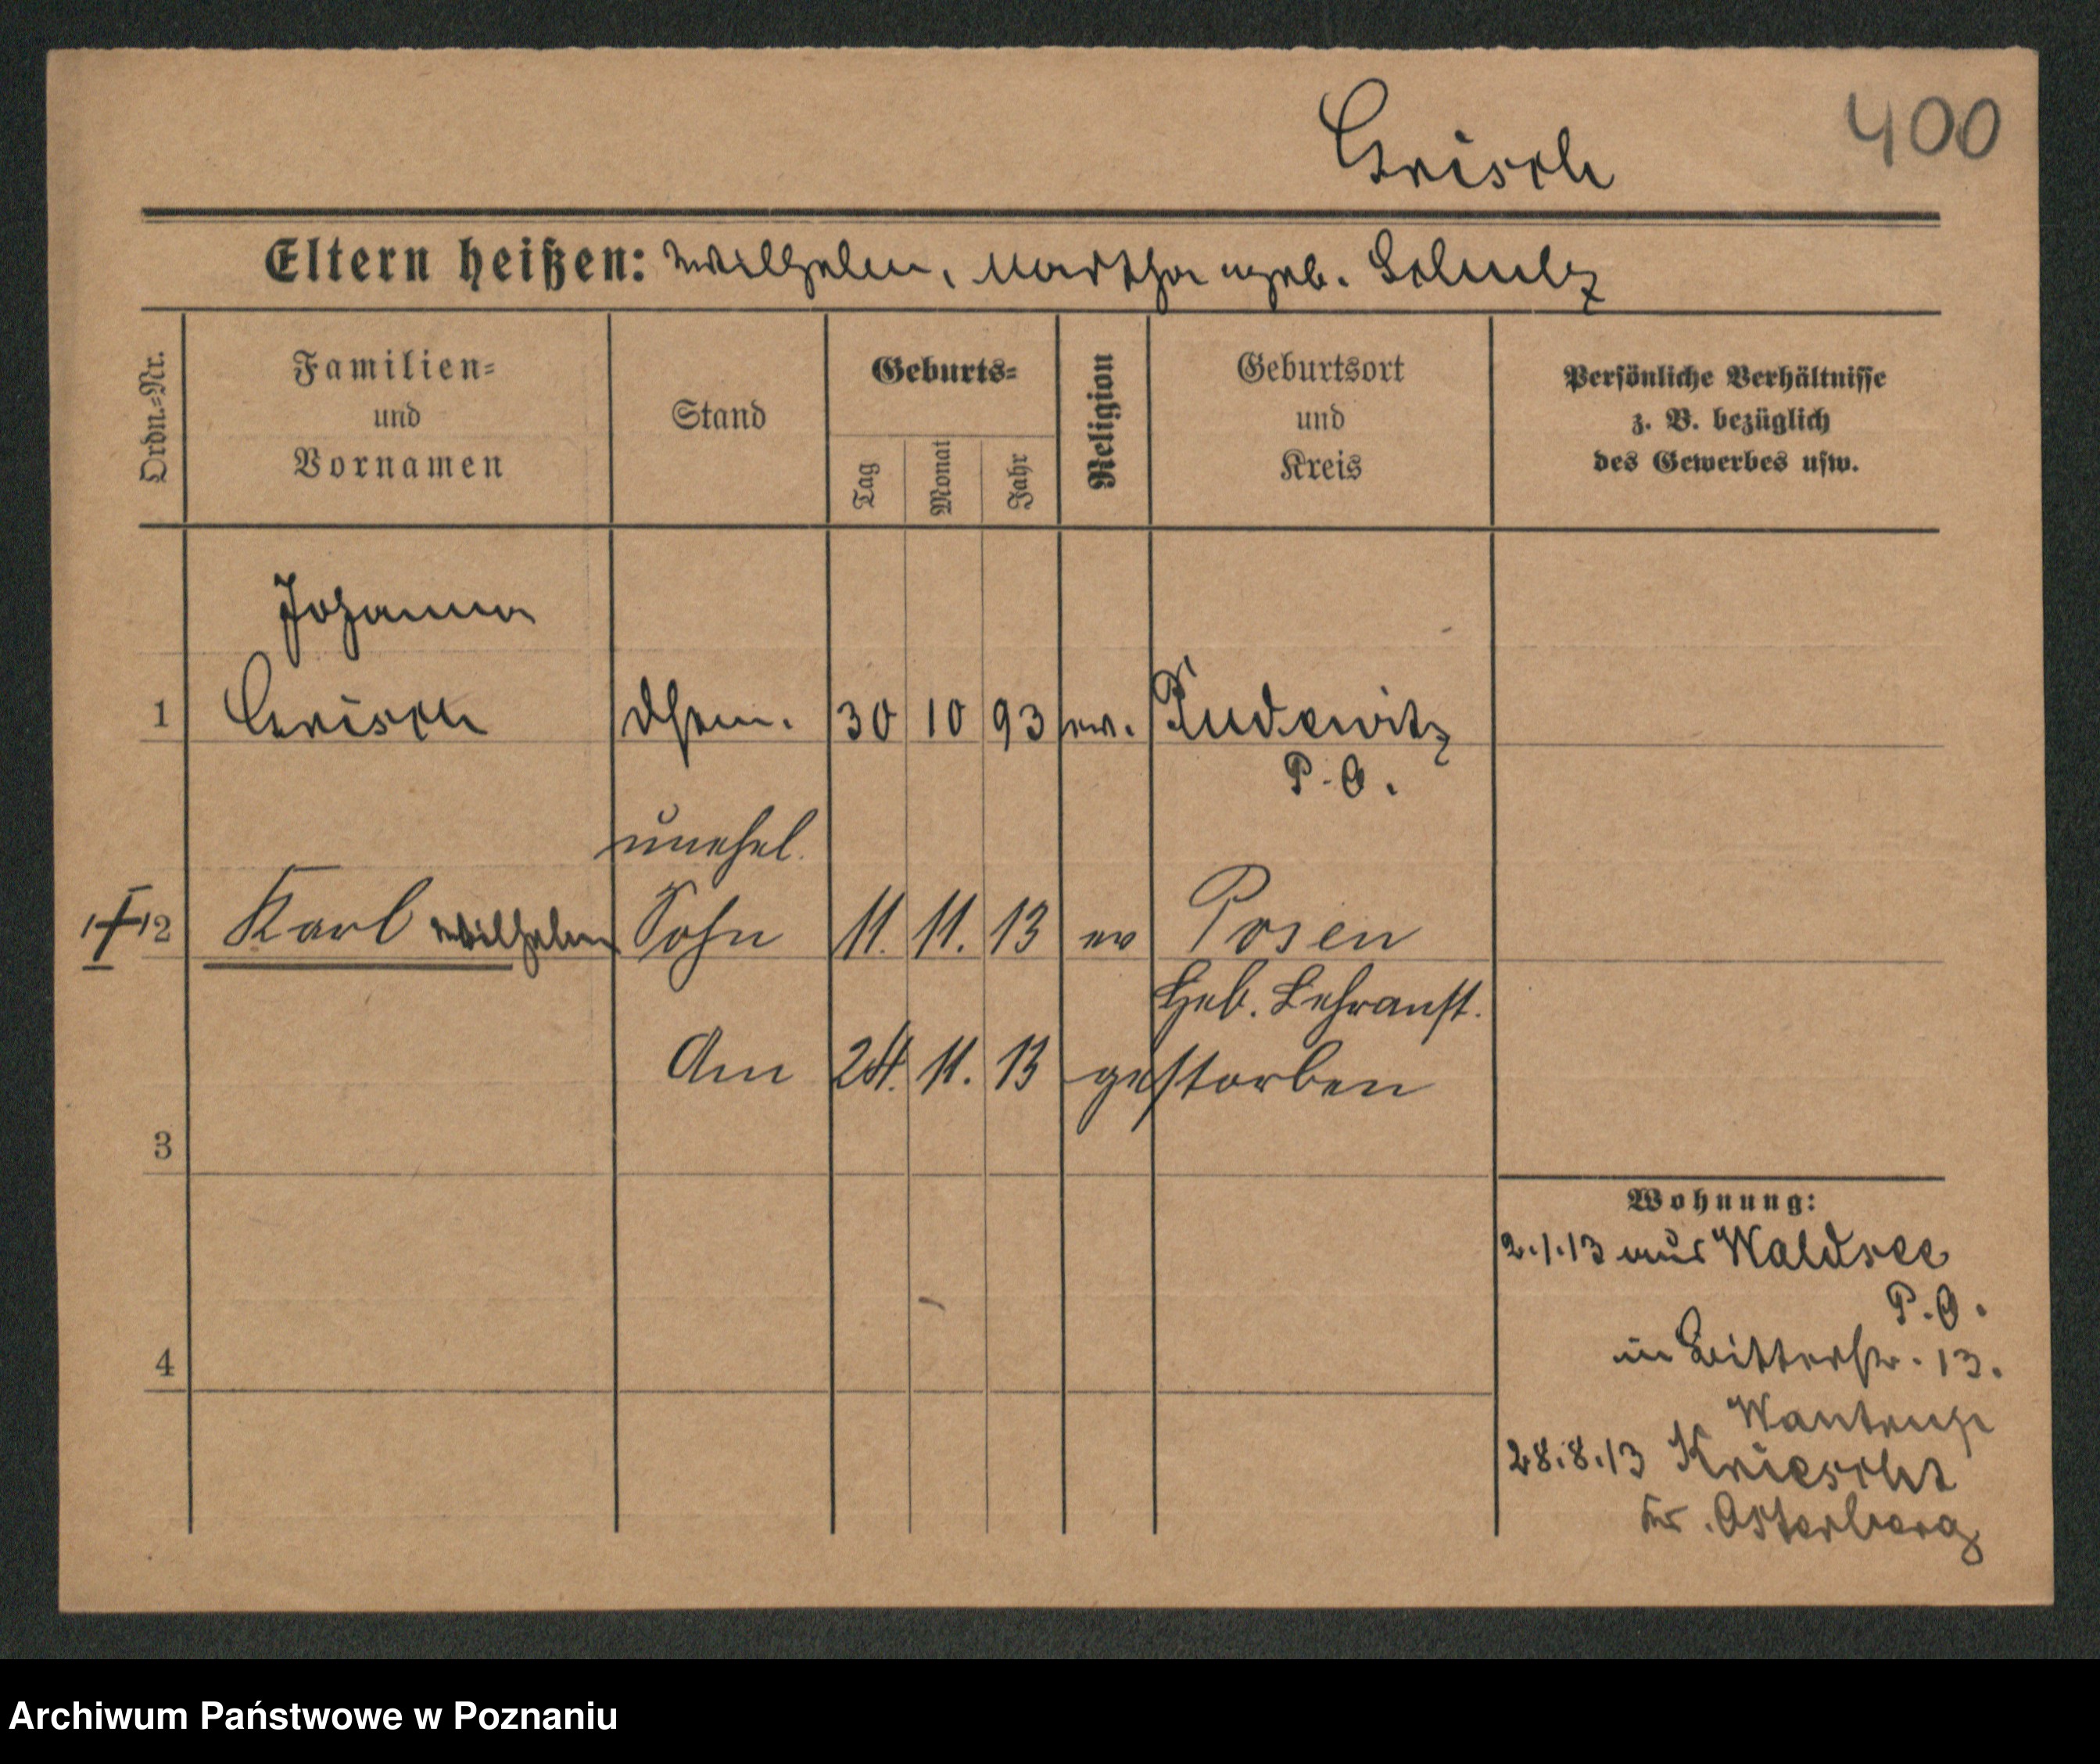 Grisch
400
Eltern heißen: Wilhelm, Martha geb. Schulz
Ordn.=Nr.
Familien=
und
Vornamen
Stand
Geburts=
Tag
Monat
Jahr
Religion
Geburtsort
und
Kreis
Persönliche Verhältnisse
z. B. bezüglich
des Gewerbes usw.
Johanna
1 Grisch 30 10 93 ev. Pudewitz
P. O.
unehel.
2 Karl Wilhelm Sohn 11. 11. 13 ev Posen
Heb. Lehranst.
Am 24. 11. 13 gestorben
3
Wohnung:
2.1.13 aus Waldsee
P. O.
in Ritterstr. 13.
4
Wantrup
28.8.13 Kriescht
Kr. Osterberg
Archiwum Państwowe w Poznaniu